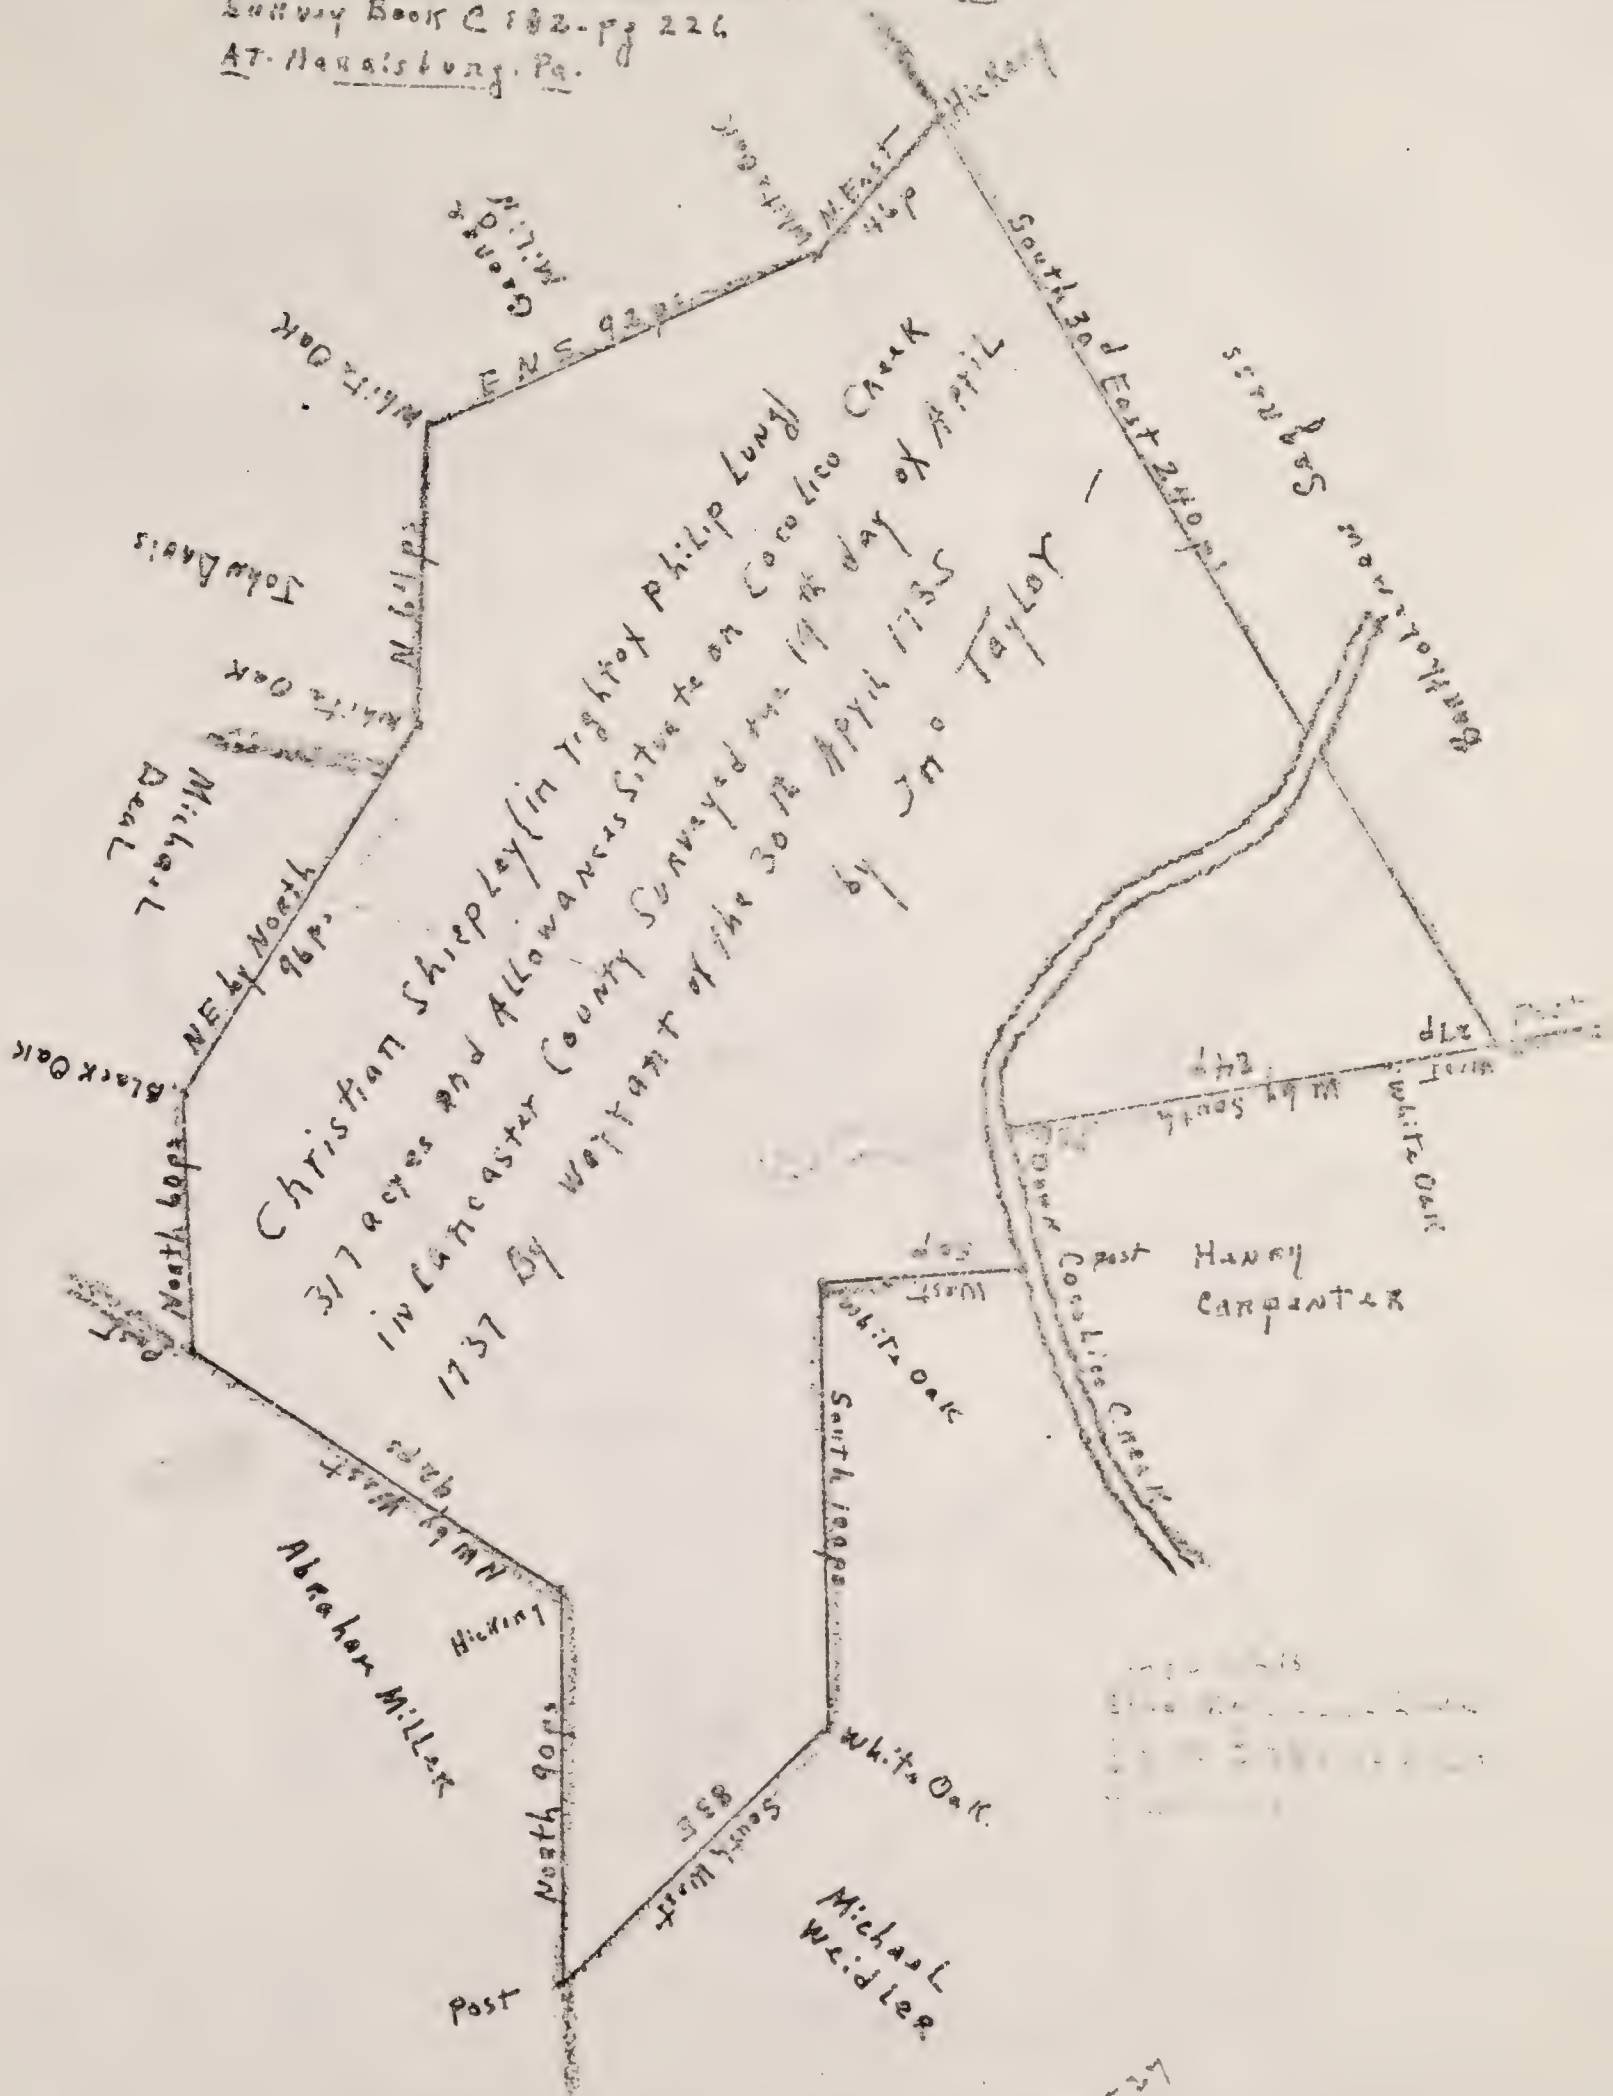 Survey Book C 182-pg 226
AT. Harrisburg. Pa.
Hickory
N. East
46p
White Oak
George
Miliz
ENE 92ps
White Oak
South 30d East 240ps
John Davis
N 71ps
White Oak
Michail
Deal
NE by North
96ps
Black Oak
North 60ps
Post
NW by West
92ps
Abraham Miller
Hickiny
North 90ps
Post
South West
83
Michael
Weidler
White Oak.
South 100ps
White Oak
West
post
Henry
Carpenter
Down Cocolico Creek
W by South
West
27p
White Oak
now
Christian Shiepley (in right of Philip Lung)
317 acres and Allowances Situate on Cocolico Creek
in Lancaster County Surveyed the 19th day of April
1737 By Warrant of the 30th April 1735
by Jno Taylor